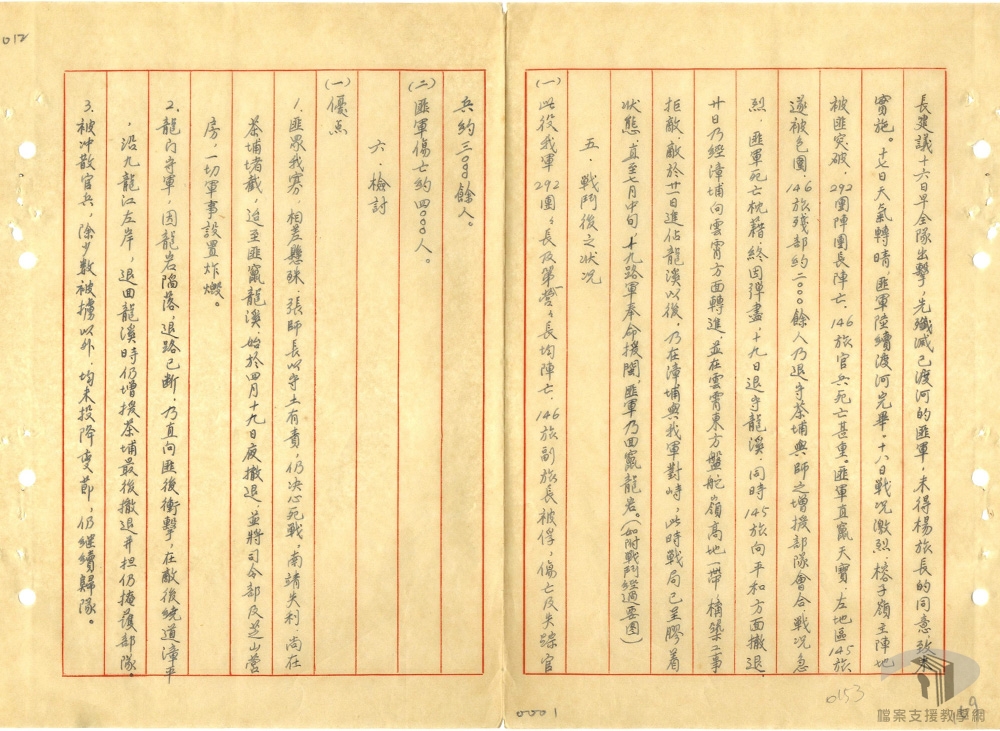 長建議十六日早全隊出擊，先殲滅已渡河的匪軍，未得楊旅長的同意致未
實施。十七日天氣轉晴，匪軍陸續渡河完畢。十八日戰况激烈．榕子嶺主陣地
被匪突破．292團陣團長陣亡．146旅官兵死亡甚重。匪軍直竄天寶．左地區145旅
遂被包圍．146旅殘部約二〇〇〇餘人乃退守茶埔與師之增援部隊會合．戰况急
烈．匪軍死亡枕藉．終因彈盡．十九日退守龍溪．同時145旅向平和方面撤退．
廿日乃經漳埔向雲霄方面轉進．並在雲霄東方盤舵嶺高地一帶．構築工事
拒敵．敵於廿一日進佔龍溪以後，乃在漳埔與我軍對峙，此時戰局已呈膠着
狀態．直至七月中旬，十九路軍奉命援閩，匪軍乃回竄龍岩。（如附戰鬥經過要圖）
五．戰鬥後之狀况
(一)此役我軍292團々長及第一營々長均陣亡．146旅副旅長被俘，傷亡及失踪官
兵約三〇〇〇餘人。
(二)匪軍傷亡約四〇〇〇人。
六．檢討
(一)優点
1．匪眾我寡，相差懸殊．張師長以守土有責，仍決心死戰．南靖失利．尚在
茶埔堵截，迨至匪竄龍溪．始於四月十九日夜撤退．並將司令部及芝山營
房，一切軍事設置炸燬。
2．龍內守軍，因龍岩陷落，退路已斷．乃直向匪後衝擊，在敵後繞道漳平
，沿九龍江左岸，退回龍溪時仍增援茶埔最後撤退并担仍掩護部隊。
3．被冲散官兵，除少數被擄以外．均未投降变節，仍继續歸隊。
012
0153
0001
檔案支援教學網